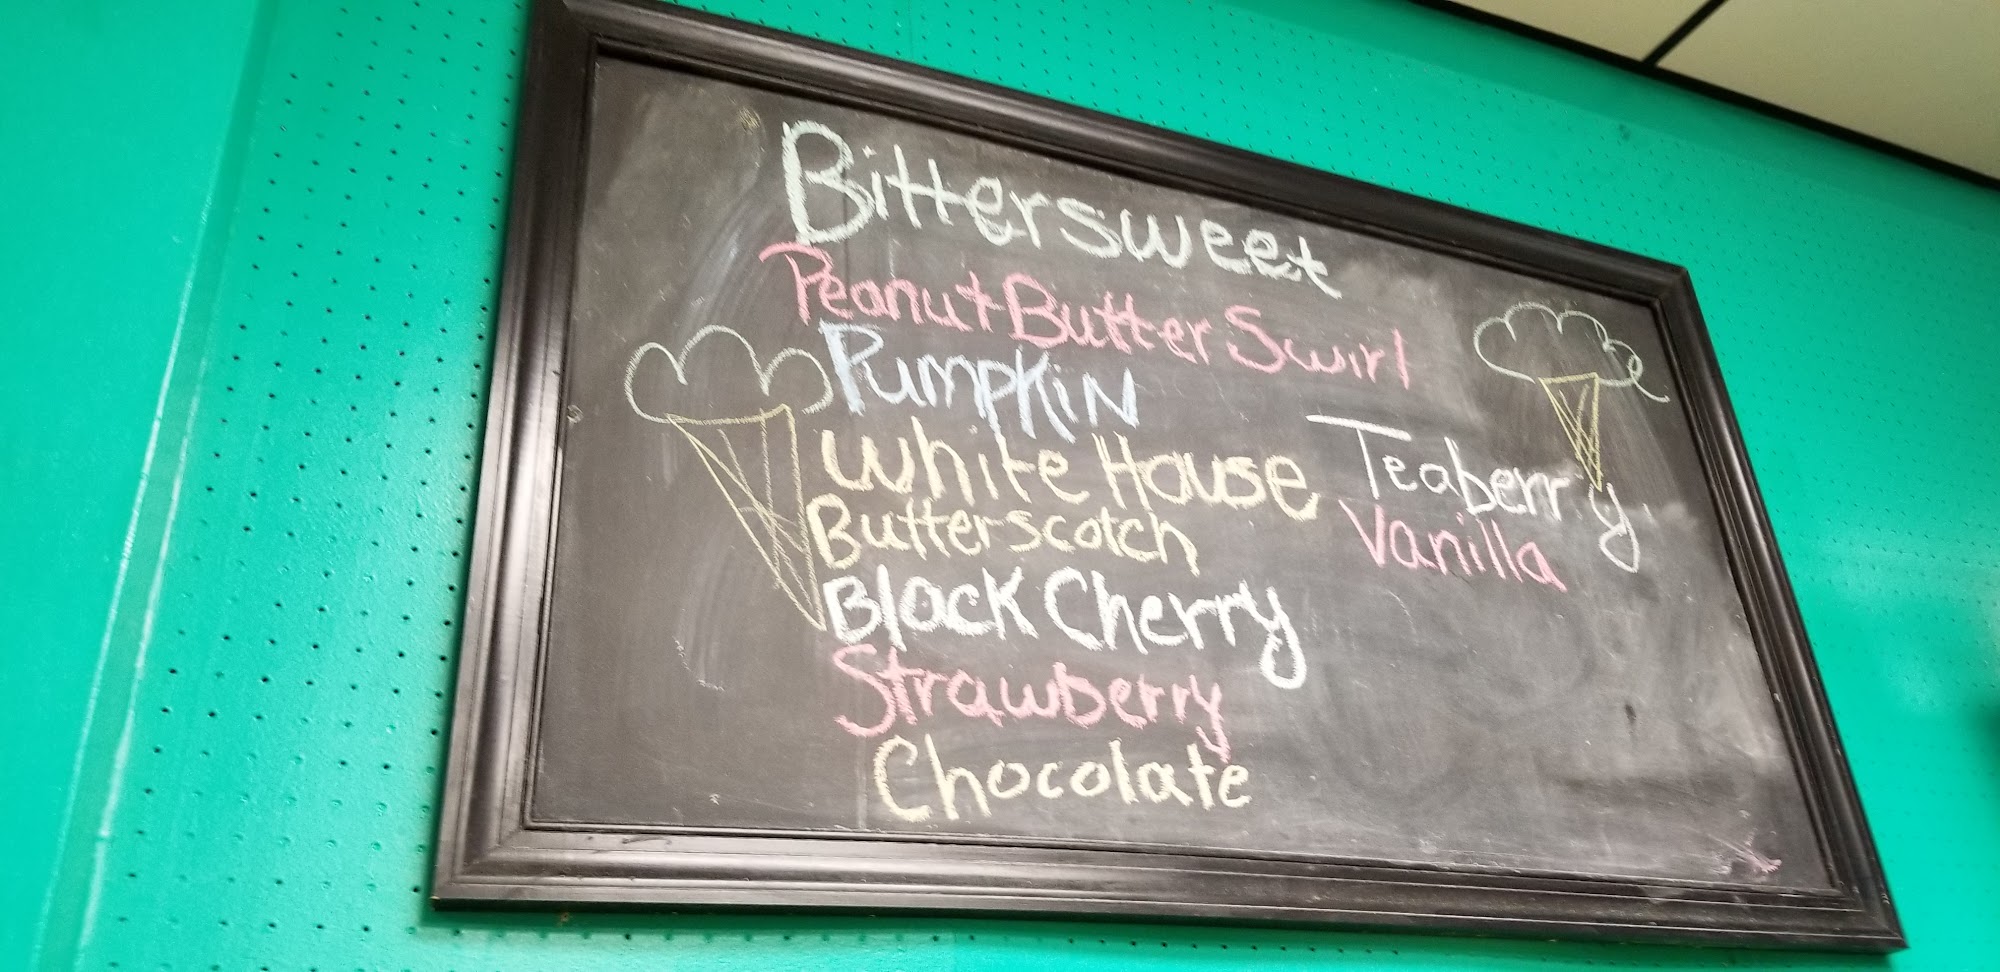 Bittersweet
Peanut Butter Swirl
Pumpkin
White House
Butterscotch
Black Cherry
Strawberry
Chocolate
Teaberry
Vanilla